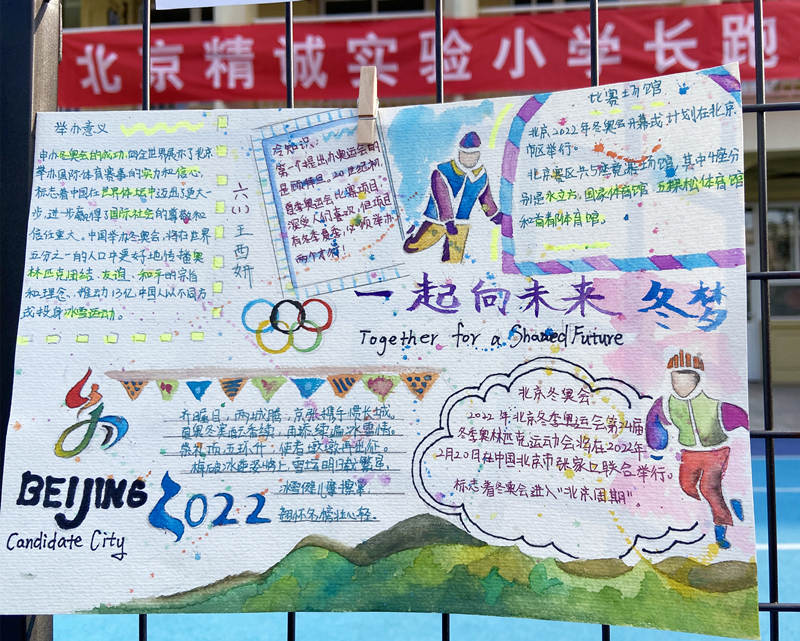 北京精诚实验小学长跑
举办意义
申办冬奥会的成功,向全世界展示了北京
举办国际体育赛事的实力和信心,
标志着中国在世界体坛中迈出了更大一
步,进步赢得了国际社会的尊敬和
信任重大。中国举办冬奥会,将在世界
五分之一的人口中更好地传播奥
林匹克团结、友谊、和平的宗旨
和理念,推动13亿中国人以不同方
式投身冰雪运动。
六(1)王西妍
冷知识:
第一个提出办奥运会的
是顾拜旦,20世纪初,
夏季奥运会比赛项目,
深受人们喜欢,但项目
有冬季夏季,必须举办
两个才行!
比赛场馆
北京2022年冬奥会开幕式计划在北京
市区举行。
北京赛区共5座竞赛场馆,其中4座分
别是水立方,国家体育馆 五棵松体育馆
和首都体育馆。
一起向未来 冬梦
Together for a Shared Future
齐瞩目,两城腾,京张携手慢长城。
夏奥冬来
冰雪情。
五环升
雪
冰雪健儿
BEIJING 2022
Candidate City
北京冬奥会
2022年北京冬季奥运会第24届
冬季奥林匹克运动会将在2022年
2月20日在中国北京市张家口联合举行。
标志着冬奥会进入"北京周期"。